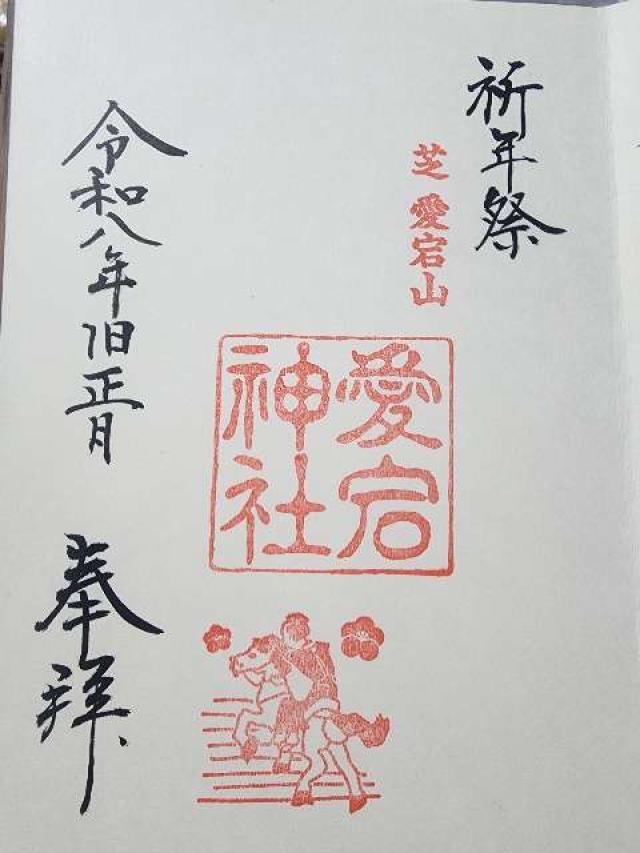 祈年祭
芝 愛宕山
愛宕
神社
令和八年旧正月
奉拝